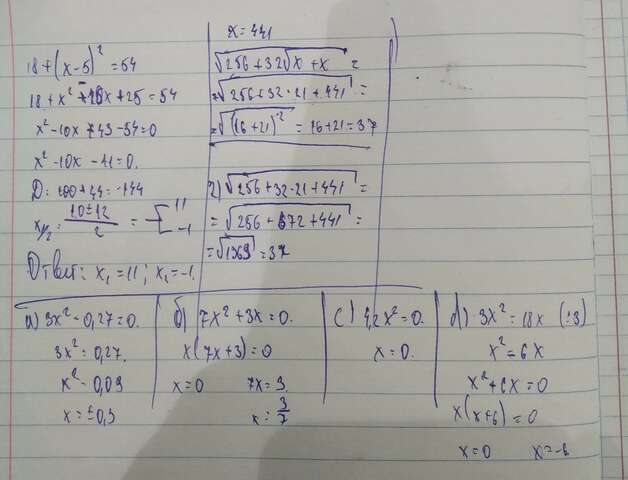 18+(x-5)²=54
18+x²-10x+25=54
x²-10x+43-54=0
x²-10x-11=0.
D=100+44=144
x1/2=10±12/2=[11 -1
Ответ: x₁=11; x₁=-1.
x=441
√256+32√x+x =
=√256+32·21+441 =
=√(16+21)² =16+21=37
2)√256+32·21+441 =
=√256+672+441 =
=√1369=37
a) 3x²-0,27=0.
3x²=0,27.
x²=0,09
x=±0,3
б) 7x²+3x=0.
x(7x+3)=0
x=0 7x=3
x=3/7
c) 4,2x²=0.
x=0.
d) 3x²=18x (:3)
x²=6x
x²+6x=0
x(x+6)=0
x=0 x=-6